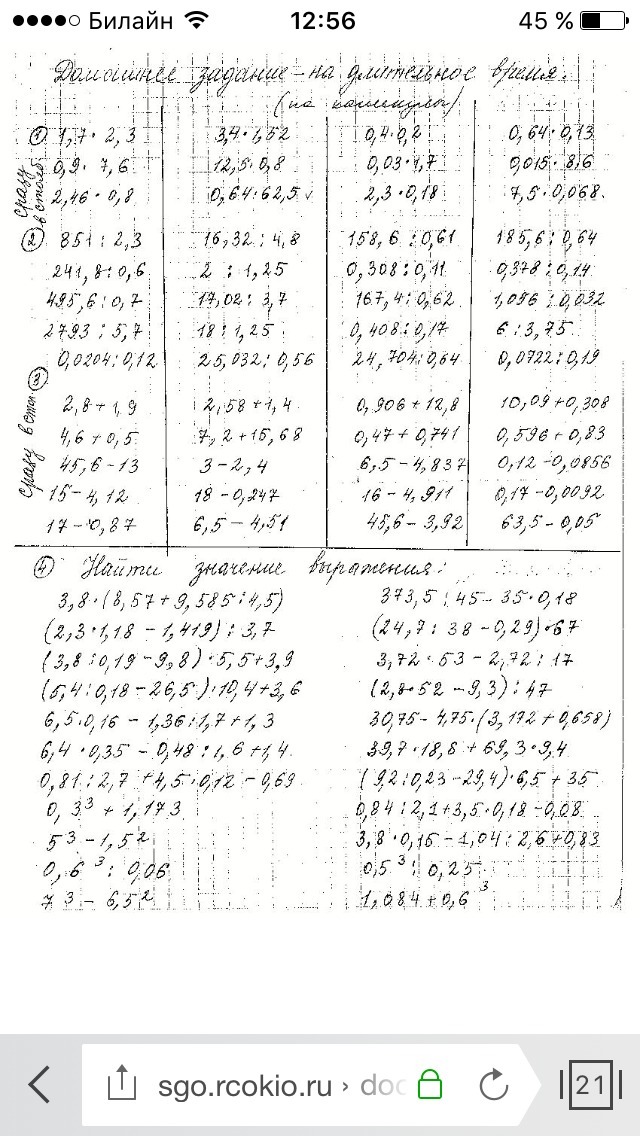 Билайн 12:56 45 %
Домашнее задание – на длительное время.
(на каникулы)
① 1,7 · 2,3 3,4 · 1,52 0,4 · 0,2 0,64 · 0,13
0,9 · 7,6 12,5 · 0,8 0,03 · 1,7 0,015 · 8,6
2,46 · 0,8 0,64 · 62,5 2,3 · 0,18 7,5 · 0,068
сразу в столб
② 851 : 2,3 16,32 : 4,8 158,6 : 0,61 185,6 : 0,64
241,8 : 0,6 2 : 1,25 0,308 : 0,11 0,378 : 0,14
495,6 : 0,7 17,02 : 3,7 167,4 : 0,62 1,056 : 0,032
2793 : 5,7 18 : 1,25 0,408 : 0,17 6 : 3,75
0,0204 : 0,12 25,032 : 0,56 24,704 : 0,64 0,0722 : 0,19
③
сразу в стол
2,8 + 1,9 2,58 + 1,4 0,906 + 12,8 10,09 + 0,308
4,6 + 0,5 7,2 + 15,68 0,47 + 0,741 0,596 + 0,83
45,6 – 13 3 – 2,4 6,5 – 4,837 0,12 – 0,0856
15 – 4,12 18 – 0,247 16 – 4,911 0,17 – 0,0092
17 – 0,87 6,5 – 4,51 45,6 – 3,92 63,5 – 0,05
④ Найти значение выражения:
3,8 · (8,57 + 9,585 : 4,5) 373,5 : 45 – 35 · 0,18
(2,3 · 1,18 – 1,419) : 3,7 (24,7 : 38 – 0,29) · 67
(3,8 : 0,19 – 9,8) · 5,5 + 3,9 3,72 · 53 – 2,72 : 17
(5,4 : 0,18 – 26,5) · 10,4 + 3,6 (2,8 · 52 – 9,3) : 47
6,5 · 0,16 – 1,36 : 1,7 + 1,3 30,75 – 4,75 · (3,172 + 0,658)
6,4 · 0,35 – 0,48 : 1,6 + 1,4 39,7 · 18,8 + 69,3 · 9,4
0,81 : 2,7 + 4,5 · 0,12 – 0,69 (9,2 : 0,23 – 29,4) · 6,5 + 35
0,3³ + 1,173 0,84 : 2,1 + 3,5 · 0,18 – 0,08
5³ – 1,5² 3,8 · 0,15 – 1,04 : 2,6 + 0,83
0,6³ : 0,06 0,5³ : 0,25
7³ – 6,5² 1,084 + 0,6³
sgo.rcokio.ru › doc 21